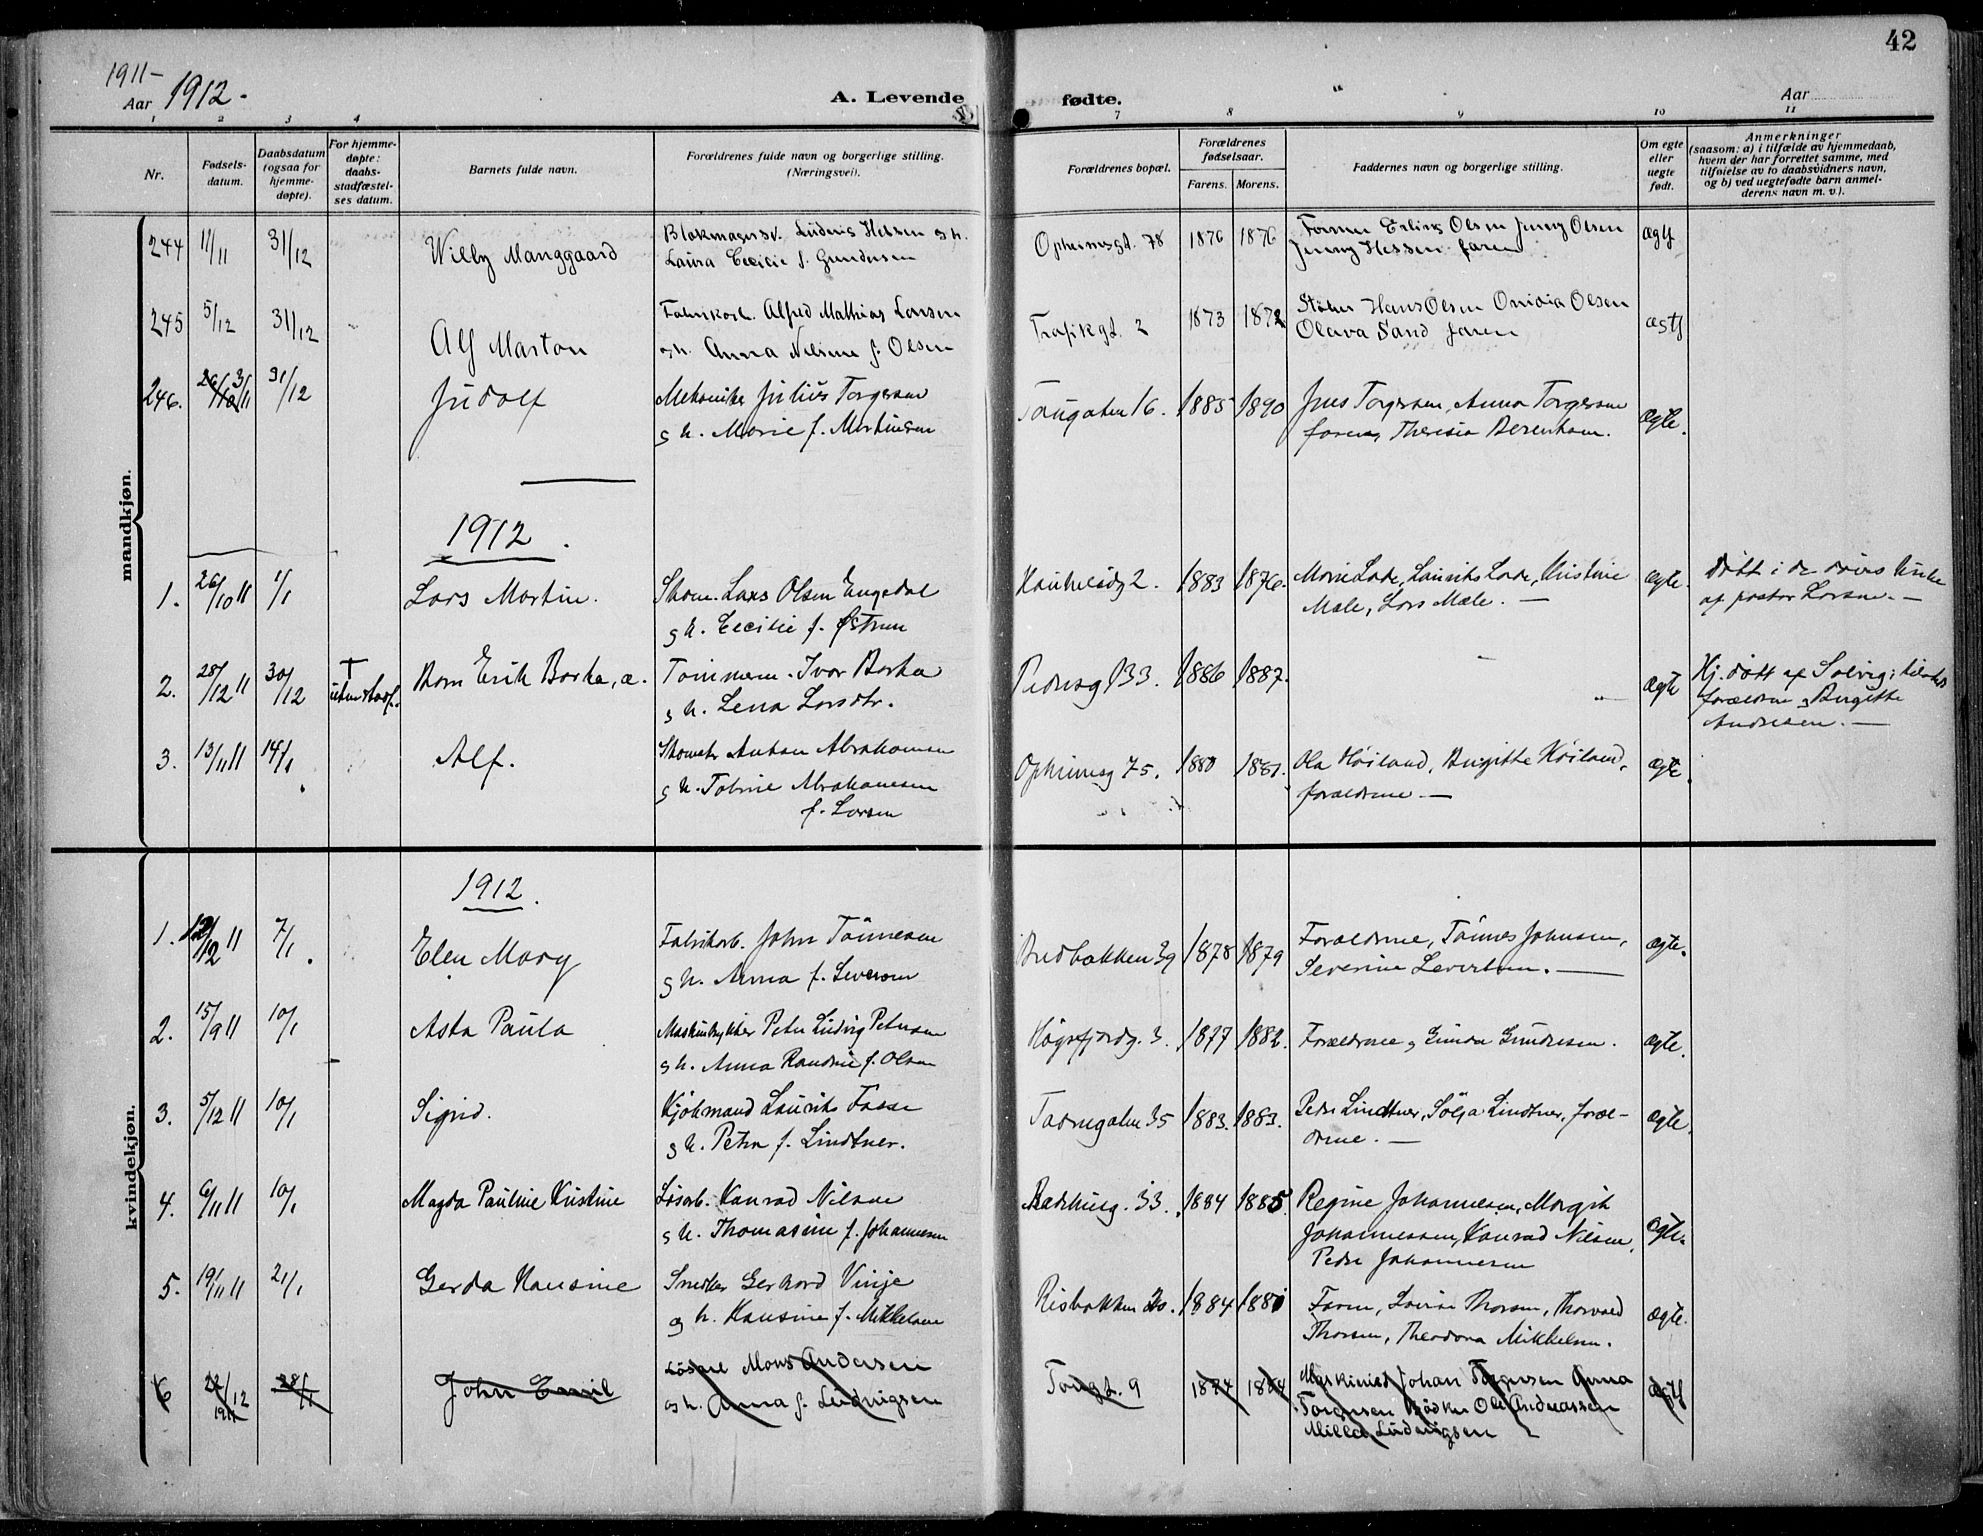 42
1911-
Aar 1912.
A. Levende
fødte.
Aar
1 2 3 4 7 8 9 10 11
Nr.
Fødsels-
datum.
Daabsdatum
(ogsaa for
hjemme-
døpte).
For hjemme-
døpte:
daabs-
stadfæstel-
ses datum.
Barnets fulde navn.
Forældrenes fulde navn og borgerlige stilling.
(Næringsvei).
Forældrenes bopæl.
Forældrenes
fødselsaar.
Farens. Morens.
Faddernes navn og borgerlige stilling.
Om egte
eller
uegte
født.
Anmerkninger
(saasom: a) i tilfælde av hjemmedaab,
hvem der har forrettet samme, med
tilføielse av to daabsvidners navn,
og b) ved uegtefødte barn anmel-
derens navn m. v.).
mandkjøn.
244 11/11 31/12 Willy Manggaard
Laura Cecilie f. Gundersen
Opheimsgt. 78 1876 1876
Erling Olsen Jenny Olsen
Jenny Hessen faren
ægtf
245 5/12 31/12 Alf Marton
Fabrikarb. Alfred Mathias Larsen
og h. Anna Neline f. Olsen
Trafikgt. 2 1873 1872
Hans Olsen Olsen
Olava Sand faren
ægtf
246. 3/11 31/12 Judolf
Mekaniker Julius Torgersen
og h. Marie f. Martinsen
16. 1885 1890
Jens Torgersen, Anna Torgersen
faren, Theresia
ægte.
1912.
1. 26/10 11 1/1 Lars Martin.
Skom. Lars Olsen Engedal
og h. Cecilie f. Østrem
Haukelidg 2. 1883 1876.
Marie Lade, Laurits Lade, Kristine
Mæle, Lars Mæle. —
ægte.
Døbt i
af pastor Larsen. —
2. 28/12 11 30/12 † Erik Barka, a.
Tømmerm. Ivar Barka
og h. Lena Larsdtr.
Pedersg 133. 1886 1887.
ægte
Hj. døbt af Solveig
forældrene og Birgitte
Andresen. —
3. 13/11 11 14/1 Alf.
Anton Abrahamsen
og h. Tobine Abrahamsen
f. Larsen
Opheimsg 75. 1880 1881.
Ola Høiland, Birgitte Høiland,
forældrene —
ægte.
kvindekjøn.
1912.
1. 12/12 11 7/1 Elen Mary
Fabrikarb. John Tønnesen
og h. Anna f. Seversen
Bredbakken 39 1878 1879
Forældrene, Tønnes Johnsen,
Severine —
ægte.
2. 15/9 11 10/1 Asta Paula
Petter Ludvig Petersen
og h. Anna Randine f. Olsen
Høgsfjordg. 3. 1877 1882.
Forældrene og Gunda Gundersen.
ægte.
3. 5/12 11 10/1 Sigrid.
Kjøbmand Laurits Fasse
og h. Petra f. Lindtner.
35 1883. 1883.
Peder Lindtner, Lindtner, foræl-
drene. —
ægte.
4. 6/11 11 10/1 Magda Pauline Kristine
Løsarb. Konrad Nilsen
og h. Thomasine f. Johannesen
Badehusg. 33. 1884 1885.
Regine Johannesen, Margit
Johannessen, Konrad Nilsen,
Peder Johannesen
ægte.
5. 19/11 11 21/1 Gerda Hansine
Snedker Gerhard Vinje
og h. Hansine f. Mikkelsen
Risbakken 1884 1881
Faren, Lovise Thorsen, Thorvald
Thorsen, Theodora Mikkelsen.
ægte.
6 22/12 1911 28/1 John Emil
Mons Andersen
og h. Anna f. Ludvigsen
9 1884 1884
Maskinist Johan Torgersen Anna
Torgersen Bødker Ole Andreassen
Milla Ludvigsen
ægtf